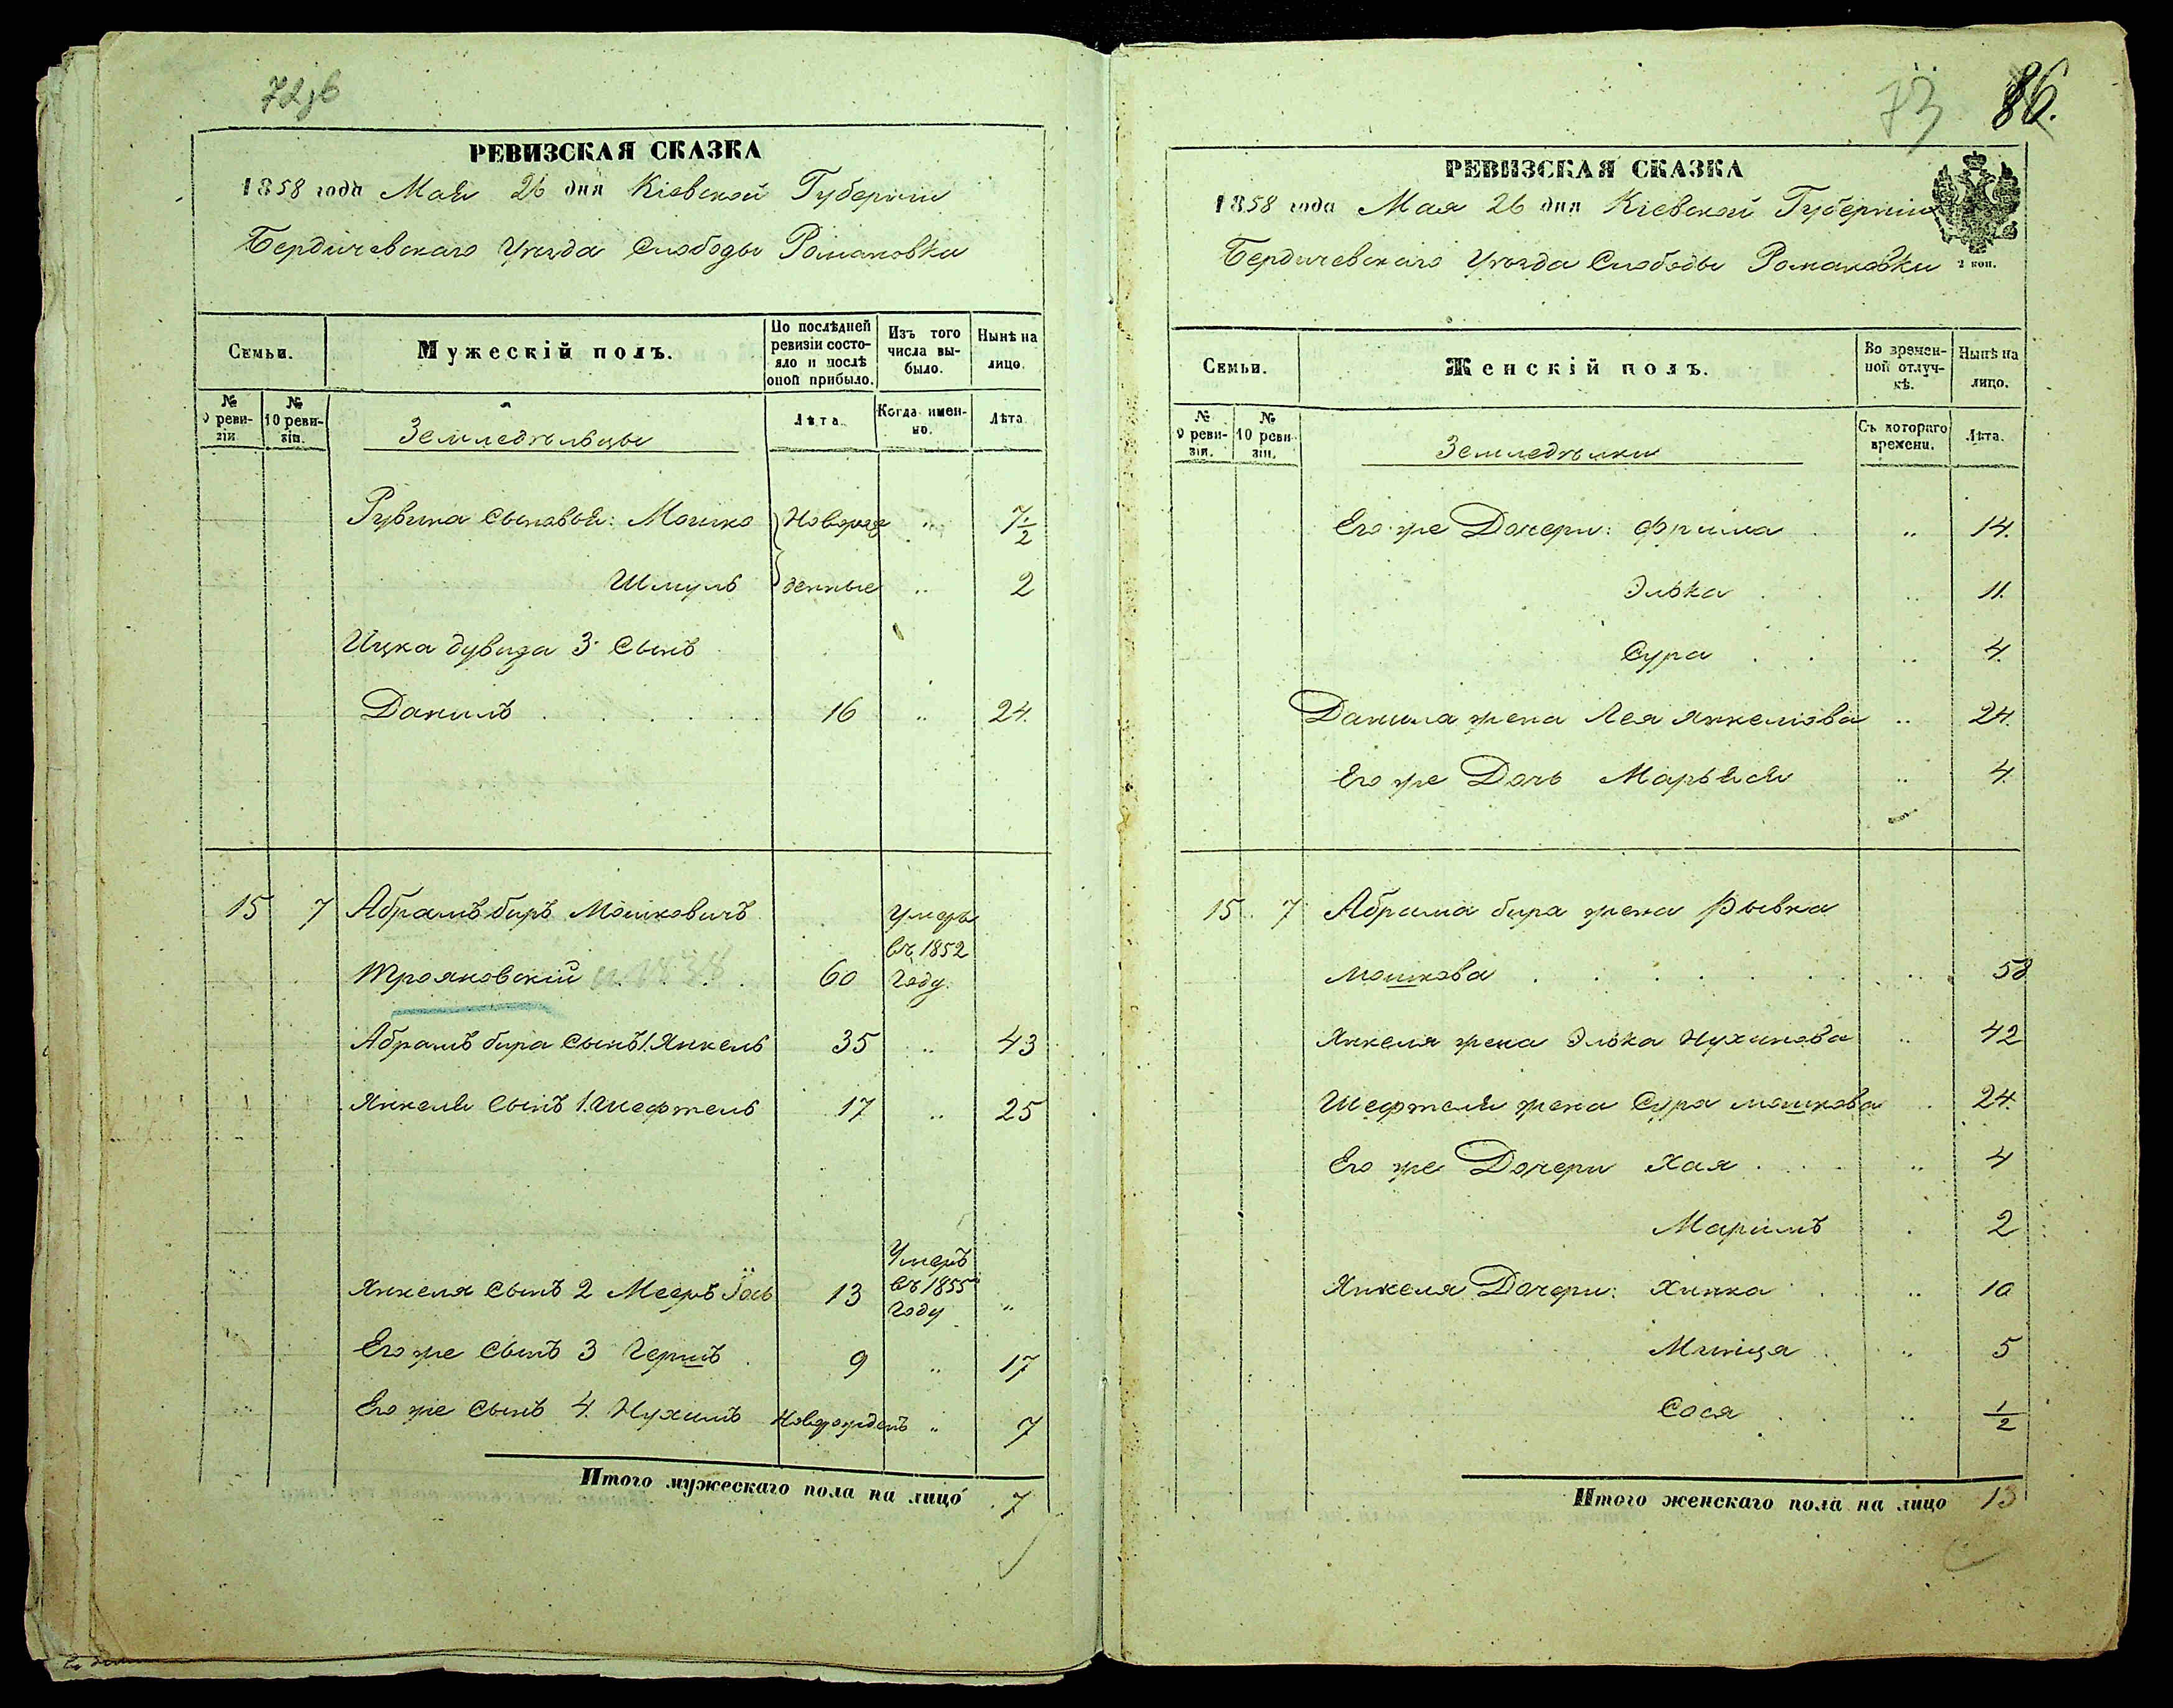 72 об
РЕВИЗСКАЯ СКАЗКА
1858 года Мая 26 дня Кіевской Губерніи
Бердичевскаго Уѣзда Слободы Романовки
Семьи.
Мужескій полъ.
По послѣдней ревизіи состояло и послѣ оной прибыло.
Изъ того числа выбыло.
Нынѣ на лицо.
№ 9 ревизіи
№ 10 ревизіи.
Земледѣльцы
Лѣта.
Когда именно.
Лѣта
Рувина сыновья: Мошко Новорож „ 7 1/2
Шмуль денные „ 2
Ицка дувида 3 Сынъ
Данилъ . . . . . . 16 „ 24.
15 7 Абрамъ биръ Мошковичъ Умеръ
въ 1852
Трояновскій 60 году.
Абрамъ бира сынъ 1. Янкель 35 „ 43
Янкеля сынъ 1. Шефтель 17 „ 25
Умеръ
Янкеля сынъ 2 Мееръ Іось 13 въ 1855 „
году
Его же сынъ 3 Гершъ . 9 „ 17
Его же сынъ 4. Нухимъ Новорожденъ „ 7
Итого мужескаго пола на лицо 7
73 86.
РЕВИЗСКАЯ СКАЗКА
1858 года Мая 26 дня Кіевской Губерніи
Бердичевскаго Уѣзда Слободы Романовки 2 коп.
Семьи.
Женскій полъ.
Во временной отлучкѣ.
Нынѣ на лицо.
№ 9 ревизіи.
№ 10 ревизіи.
Земледѣлки
Съ котораго времени.
Лѣта.
Его же Дочери: Фрима . „ 14.
Элька . . „ 11.
Сура . . „ 4.
Данила жена Лея Янкелiова „ 24.
Его же Дочь Марьяся „ 4.
15. 7 Абрама бира жена Рывка
мошкова . . . . . . „ 58
Янкеля жена Элька Нухимова „ 42
Шефтеля жена Сура мошкова . 24.
Его же Дочери Хая . . . „ 4
Маримъ . 2
Янкеля Дочери: Хинка . „ 10
Миниця . „ 5
Сося . . „ 1/2
Итого женскаго пола на лицо 13